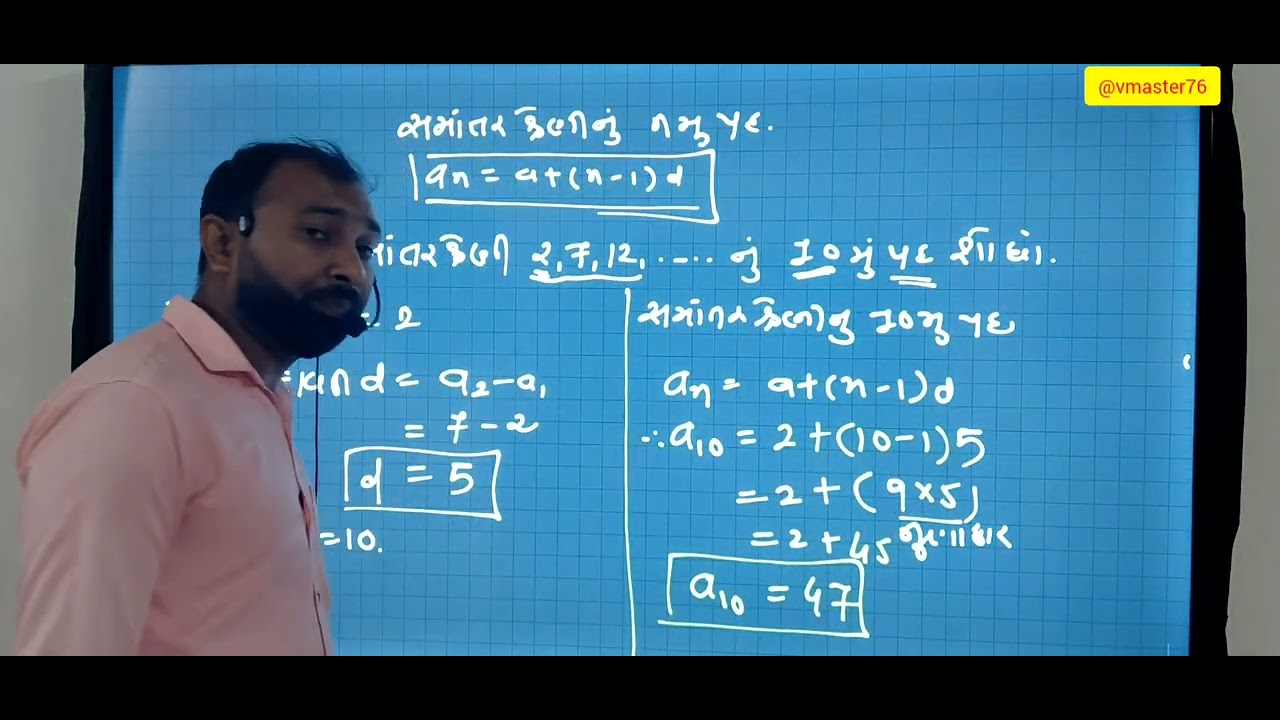 @vmaster76
સમાંતર શ્રેણીનું nમુ પદ.
an = a+(n-1)d
2,7,12, ..... નું 10મું પદ શોધો.
2
d = a2-a1
= 7-2
d = 5
=10.
સમાંતર શ્રેણીનું 10મુ પદ
an = a+(n-1)d
∴a10 = 2+(10-1)5
= 2+(9×5)
= 2+45
a10 = 47